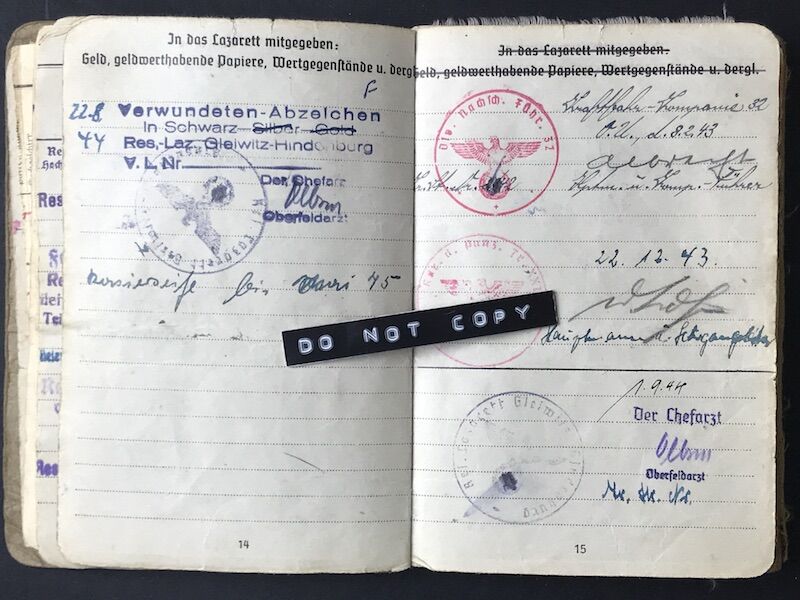 In das Lazarett mitgegeben:
Geld, geldwerthabende Papiere, Wertgegenstände u. dergl.
F
22.8
44
Verwundeten-Abzeichen
In Schwarz Silber Gold
Res.-Laz. Gleiwitz-Hindenburg
V. L. Nr.
Der Chefarzt
Oberfeldarzt
bis 45
14
In das Lazarett mitgegeben.
Geld, geldwerthabende Papiere, Wertgegenstände u. dergl.
Div. Nachsch. Fhr. 32
Kraftfahr-Kompanie 32
O.U., d. 8.2.43
Albrecht
Hptm. u. Komp.-Führer
22.12.43.
Hauptmann u.
DO NOT COPY
1.9.44
Der Chefarzt
Oberfeldarzt
Gleiwitz
15